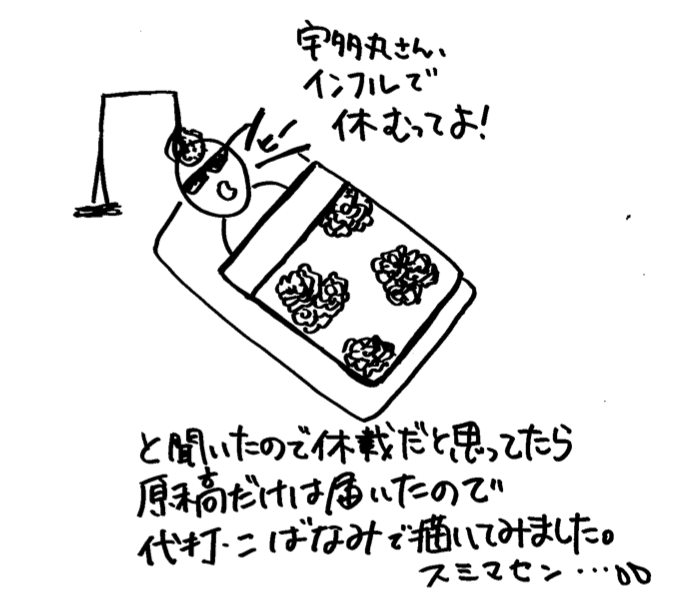 宇多丸さん、
インフルで
休むってよ!
と聞いたので休載だと思ってたら
原稿だけは届いたので
代打・こばなみで描いてみました。
スミマセン…